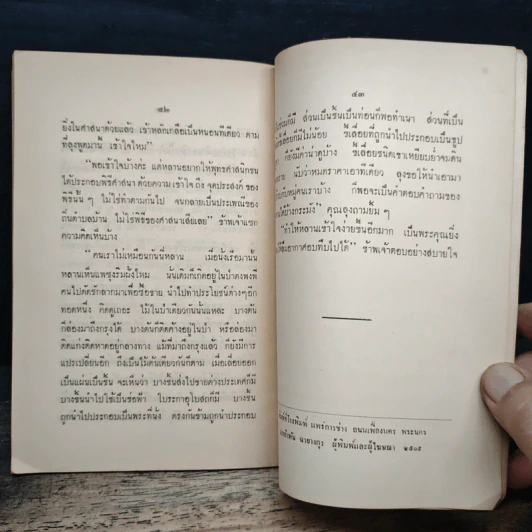 ๔๒
ยิ่งในศาสนาด้วยแล้ว เข้าหลักเกลือเป็นหนอนทีเดียว ตาม
ที่ลุงพูดมานั้น เข้าใจไหม"
"พอเข้าใจบ้างค่ะ แต่หลานอยากให้พุทธศาสนิกชน
ได้ประกอบพิธีศาสนา ด้วยความเข้าใจถึง จุดประสงค์ ของ
พิธีนั้น ๆ ไม่ใช่ทำตามกันไป จนกลายเป็นประเพณีของ
ถิ่นตำบลบ้าน ไม่ใช่พิธีของศาสนาเลยเลย" ข้าพเจ้าแซก
ความคิดเห็นบ้าง
"คนเราไม่เหมือนกันนี่หลาน เมื่อนั่งเรือมานั้น
หลานเห็นแพซุงริมฝั่งไหม นั่นเดิมก็เกิดอยู่ในป่าดงพงพี
คนไปตัดชักลากมาเพื่อซื้อขาย นำไปทำประโยชน์ต่างๆอีก
ทอดหนึ่ง คิดดูเถอะ ไม้ในป่าเดียวกันนั่นแหละ บางต้น
ก็ล่องมาถึงกรุงได้ บางต้นก็ติดค้างอยู่ในป่า หรือล่องมา
ติดแก่งติดหาดอยู่กลางทาง แม้ที่มาถึงกรุงแล้ว ก็ยังมีการ
แปรเปลี่ยนอีก ถึงเป็นไม้ต้นเดียวกันก็ตาม เมื่อเลื่อยออก
เป็นแผ่นเป็นชิ้น จะเห็นว่า บางชิ้นส่งไปขายต่างประเทศก็มี
บางชิ้นนำไปใช้เป็นช่อฟ้า ใบระกาอุโบสถก็มี บางชิ้น
ถูกนำไปประกอบเป็นพระที่นั่ง ตรงกันข้ามถูกนำประกอบ
๔๓
ก็มี ส่วนเป็นชิ้นเป็นท่อนก็พอทำเนา ส่วนที่เป็น
ก็มีไม่น้อย ขี้เลื่อยที่ถูกนำไปประกอบเป็นรูป
ก็ยังมีค่าน่าดูบ้าง ขี้เลื่อยชนิดเขาเหยียบย่ำจมดิน
นับว่าหมดราคาเอาทีเดียว ลุงขอให้นำเอามา
กับหมู่คนเราบ้าง ก็พอจะเป็นคำตอบคำถามของ
ได้บ้างกระมัง" คุณลุงถามยิ้ม ๆ
"ทำให้หลานเข้าใจง่ายขึ้นอีกมาก เป็นพระคุณยิ่ง
อากาศอบทึบไปได้" ข้าพเจ้าตอบอย่างสบายใจ
โรงพิมพ์ แพร่การช่าง ถนนเฟื่องนคร พระนคร
นายางกูร ผู้พิมพ์และผู้โฆษณา ๒๕๐๙